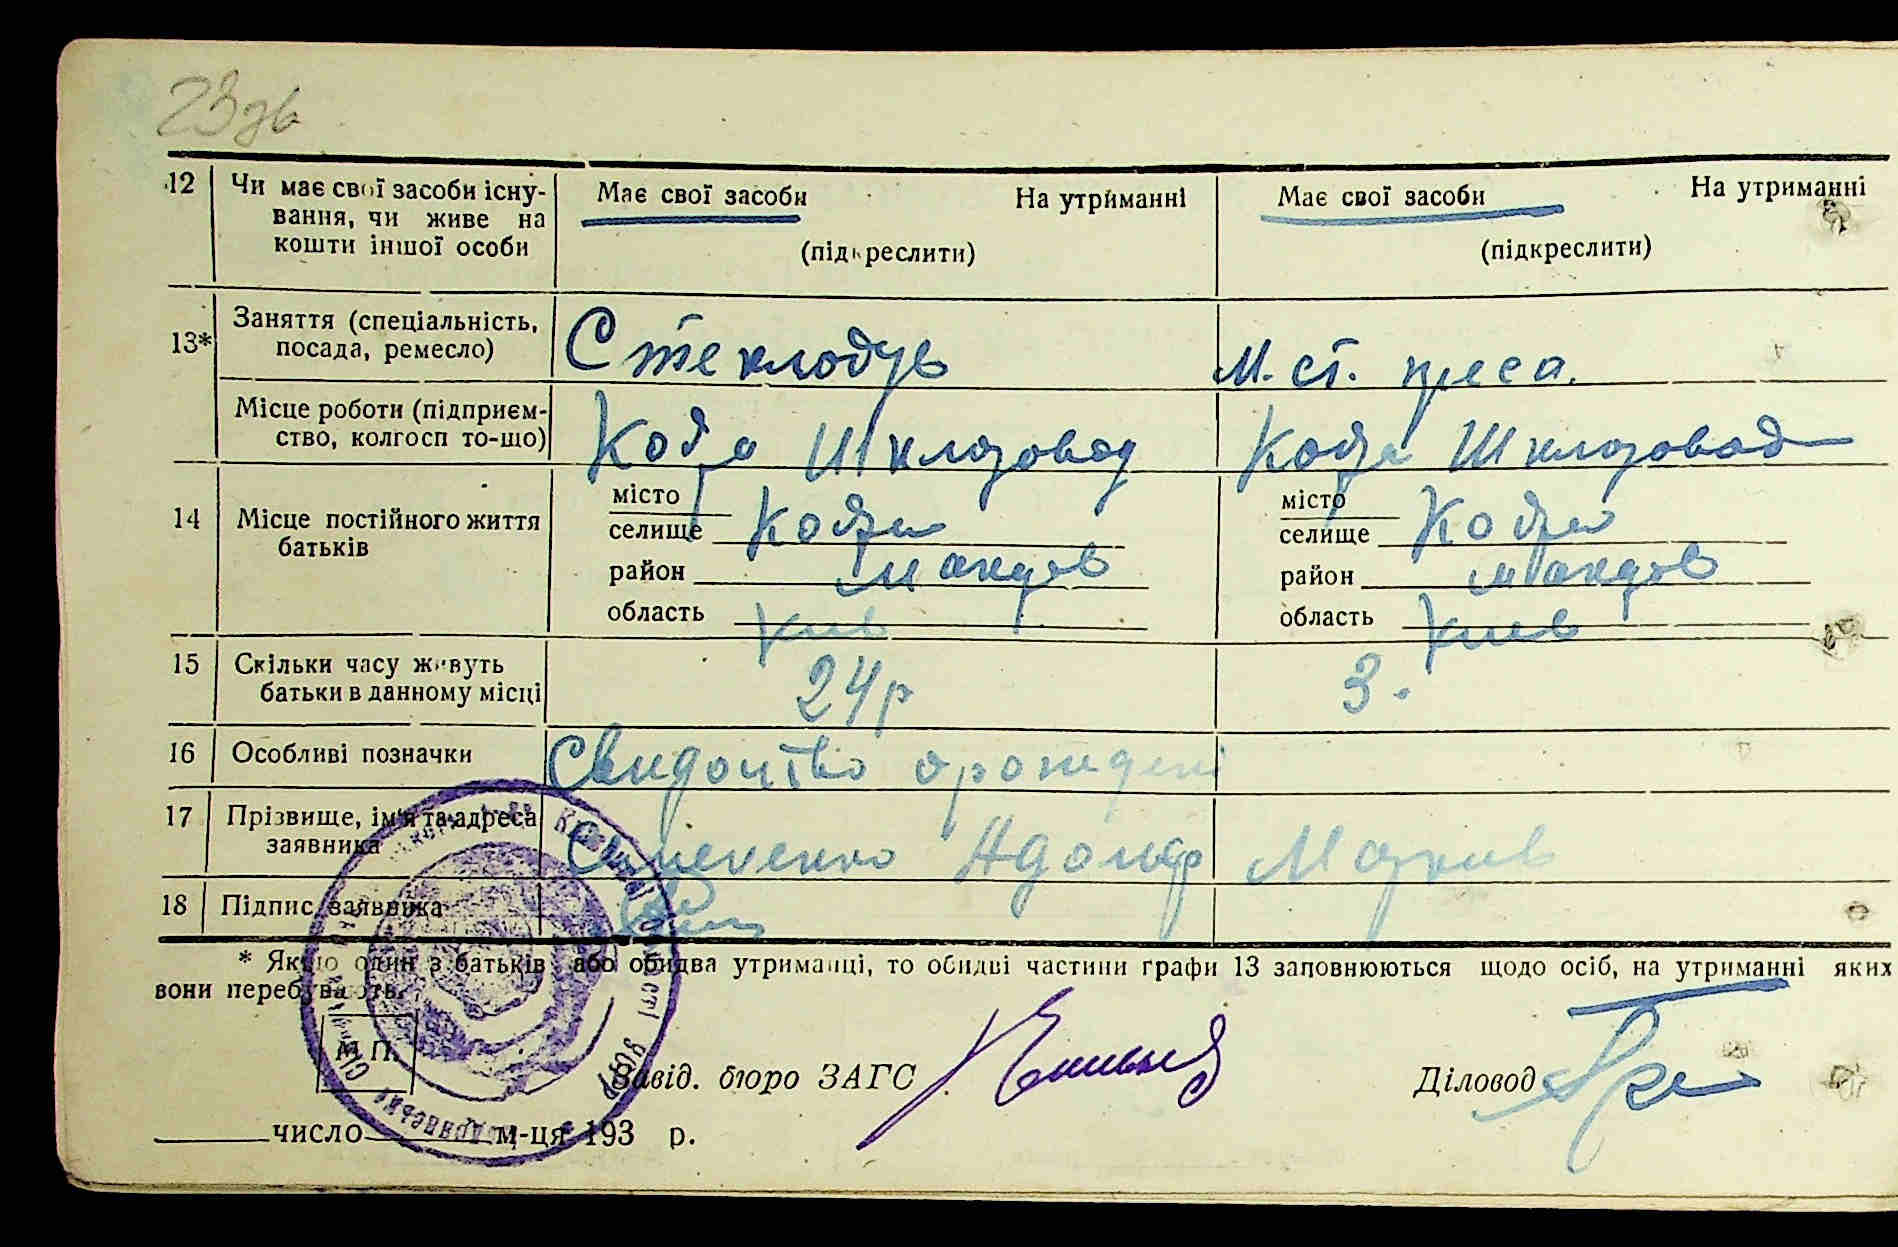 23зв
12 Чи має свої засоби існу- Має свої засоби На утриманні Має свої засоби На утриманні
вання, чи живе на
кошти іншої особи (підкреслити) (підкреслити)
13* Заняття (спеціальність, Стеклодув М. ст. преса.
посада, ремесло)
Місце роботи (підприєм- Кодра Шклозовод Кодра Шклозовод
ство, колгосп то-що)
місто місто
14 Місце постійного життя селище Кодра селище Кодра
батьків район Макарів район Макарів
область Киев область Киев
15 Скільки часу живуть 24р 3.
батьки в данному місці
16 Особливі позначки Свидоцтво о рождені
17 Прізвище, ім'я та адреса Адольф
заявника
18 Підпис заявника
* Якщо один з батьків або обидва утриманці, то обидві частини графи 13 заповнюються щодо осіб, на утриманні яких
вони перебувають.
М.П.
Завід. бюро ЗАГС Діловод
число м-ця 193 р.